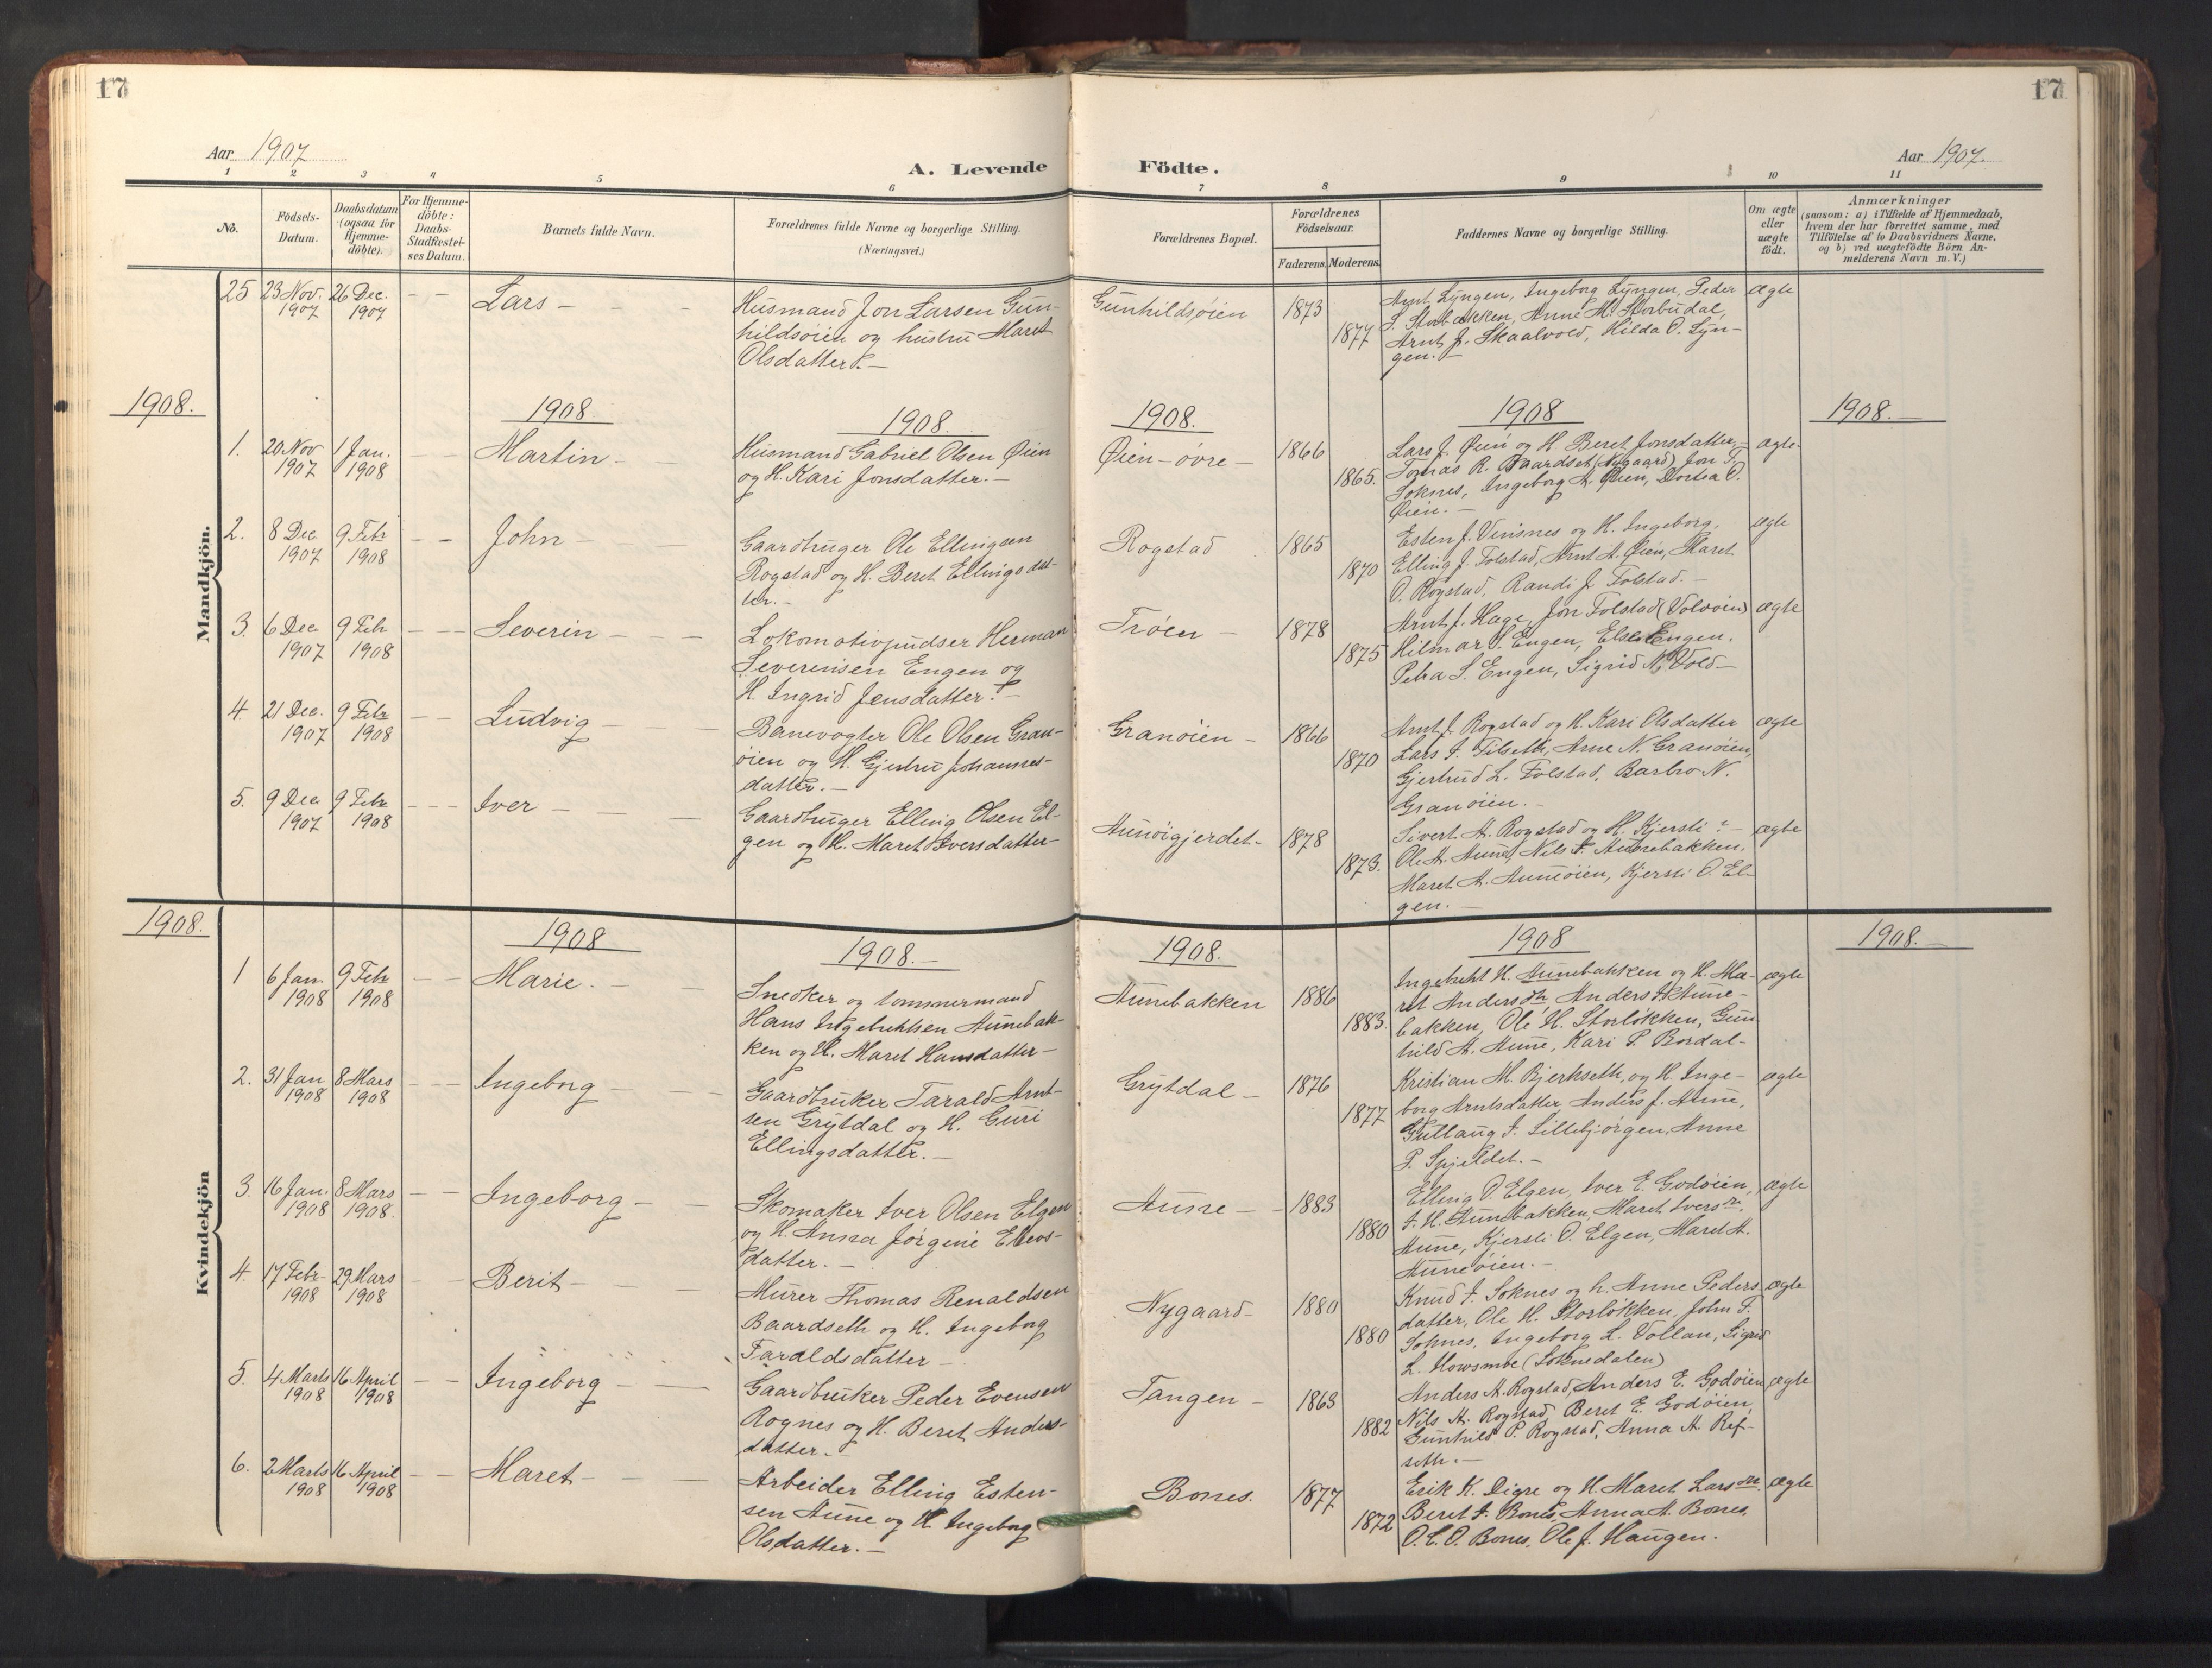 17
17
Aar 1907
A. Levende
Födte.
Aar 1907.
1 2 3 4 5 6 7 8 9 10 11
No.
Födsels-
Datum.
Daabsdatum
(ogsaa for
Hjemme-
döbte).
For Hjemme-
döbte:
Daabs-
Stadfæstel-
ses Datum.
Barnets fulde Navn.
Forældrenes fulde Navne og borgerlige Stilling.
(Næringsvei.)
Forældrenes Bopæl.
Forældrenes
Födselsaar.
Faderens. Moderens.
Faddernes Navne og borgerlige Stilling.
Om ægte
eller
uægte
födt.
Anmærkninger
(saasom: a) i Tilfælde af Hjemmedaab,
hvem der har forrettet samme, med
Tilföielse af to Daabsvidners Navne,
og b) ved uægtefödte Börn An-
melderens Navn m. V.)
Mandkjön.
25 23 Nov. 1907
26 Dec. 1907
Lars
Husmand Jon Larsen Gun-
hildsöien og hustru Maret
Olsdatter.
Gunhildsöien
1873
1877
Arnt Lyngen, Ingeborg Lyngen, Peder
S. Storbækken, Anne M. Storbudal,
Arnt J. Skaalvold, Hilda O. Lyn-
gen.
ægte
1908.
1908.
1908.
1908.
1908
1908.
1. 20 Nov 1907
1 Jan. 1908
Martin
Husmand Gabriel Olsen Øien
og H. Kari Jonsdatter.
Øien-övre
1866
1865.
Lars J. Øien og H. Beret Jonsdatter,
Tomas R. Baardset (Nygaard) Jon T.
Soknes, Ingeborg A. Øien, Dortea O.
Øien.
ægte.
2. 8 Dec. 1907
9 Febr 1908
John
Gaardbruger Ole Ellingsen
Rogstad og H. Beret Ellingsdat-
ter.
Rogstad
1865
1870
Esten J. Vinsnes og H. Ingeborg,
Elling J. Folstad, Arnt A. Øien, Maret
O. Rogstad, Randi J. Folstad.
ægte
3. 6 Dec 1907
9 Feb 1908
Severin
Lokomotivpudser Herman
Severinsen Engen og
H. Ingrid Jensdatter.
Tröen
1878
1875
Arnt J. Hage, Jon Folstad (Volvöien)
Hilmar S. Engen, Else Engen.
Petra S. Engen, Sigrid N. Vold
ægte
4. 21 Dec. 1907
9 Febr 1908
Ludvig
Banevogter Ole Olsen Gran-
öien og H. Gjertru Johannes-
datter.
Granöien
1866
1870
Arnt J. Rogstad og H. Kari Olsdatter
Lars I. Tilseth, Arne N. Granöien,
Gjertrud L. Folstad, Barbro N.
Granöien.
ægte
5. 9 Dec. 1907
9 Febr 1908
Iver
Gaardbruger Elling Olsen El-
gen og H. Maret Iversdatter
Aunöigjerdet.
1878
1873.
Sivert A. Rogstad og H. Kjersti ?
Ole A. Aune, Nils I. Aunebakken.
Maret A. Aunöien, Kjersti O. El-
gen.
ægte
Kvindekjön
1908.
1908
1908.
1908.
1908
1908.
1 6 Jan. 1908
9 Febr 1908
Marie.
Snedker og tommermand
Hans Ingebrektsen Aunebak-
ken og H. Maret Hansdatter
Aunebakken
1886
1883.
Ingebrekt H. Aunebakken og H. Ma-
ret Andersdtr, Anders I. Aune-
bakken, Ole H. Storlökken, Gun-
hild A. Aune, Kari P. Bordal
ægte
2. 31 Jan 1908
8 Mars 1908
Ingeborg
Gaardbruker Tarald Arnt-
sen Grytdal og H. Guri
Ellingsdatter.
Grytdal
1876
1877
Kristian M. Bjerkseth, og H. Inge-
borg Arntsdatter Anders J. Aune,
Gullaug I. Lillebjörgen, Anne
P. Spjeldet.
ægte
3. 16 Jan. 1908
8 Mars 1908.
Ingeborg
Skomaker Iver Olsen Elgen
og H. Anna Jörgine Elevs-
datter.
Aune
1883
1880
Elling O. Elgen, Iver E. Godöien,
I. H. Aunebakken, Maret Ivers
Aune, Kjersti O. Elgen, Maret A.
Auneöien.
ægte
4. 17 Febr 1908
29 Mars 1908
Berit
Murer Thomas Renaldsen
Baardseth og H. Ingeborg
Taraldsdatter
Nygaard
1880
1880
Knud I. Soknes og h. Anne Peders-
datter, Ole H. Storlökken, John T.
Soknes, Ingeborg L. Vollan, Sigrid
L. Howsmoe (Soknedalen)
ægte
5. 4 Marts 1908
16 April 1908
Ingeborg
Gaardbruker Peder Evensen
Rognes og H. Beret Anders-
datter.
Tangen
1863
1882
Anders A. Rogstad, Anders E. Godöien
Nils A. Rogstad, Beret E. Godöien,
Gunhild P. Rogstad, Anna A. Ref-
seth.
ægte
6. 2 Marts 1908
16 April 1908
Maret
Arbeider Elling Esten-
sen Aune og H. Ingeborg
Olsdatter.
Bones.
1877
1872
Erik K. Digre og H. Maret Lars
Beret I. Bones, Anna A. Bones,
O. E. O. Bones, Ole J. Haugen.
ægte